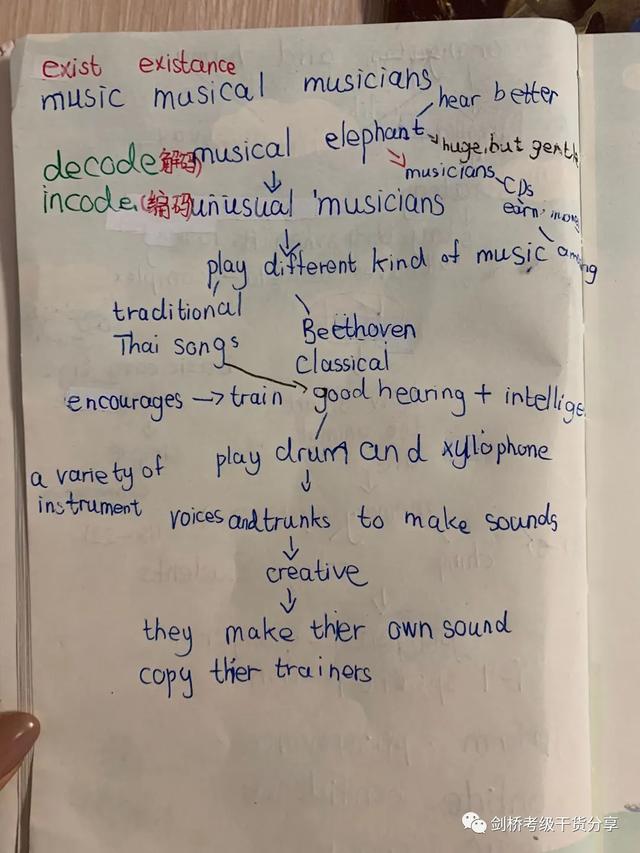 exist existance
music musical musicians
hear better
musical elephant
huge, but gentl
decode (解码)
musicians
CDs
incode (编码)
unusual musicians
earn
play different kind of music
traditional
Thai songs
Beethoven
Classical
encourages → train
good hearing + intellige
play drum and xylophone
a variety of
instrument
voices and trunks to make sounds
creative
they make thier own sound
copy thier trainers
剑桥考级干货分享